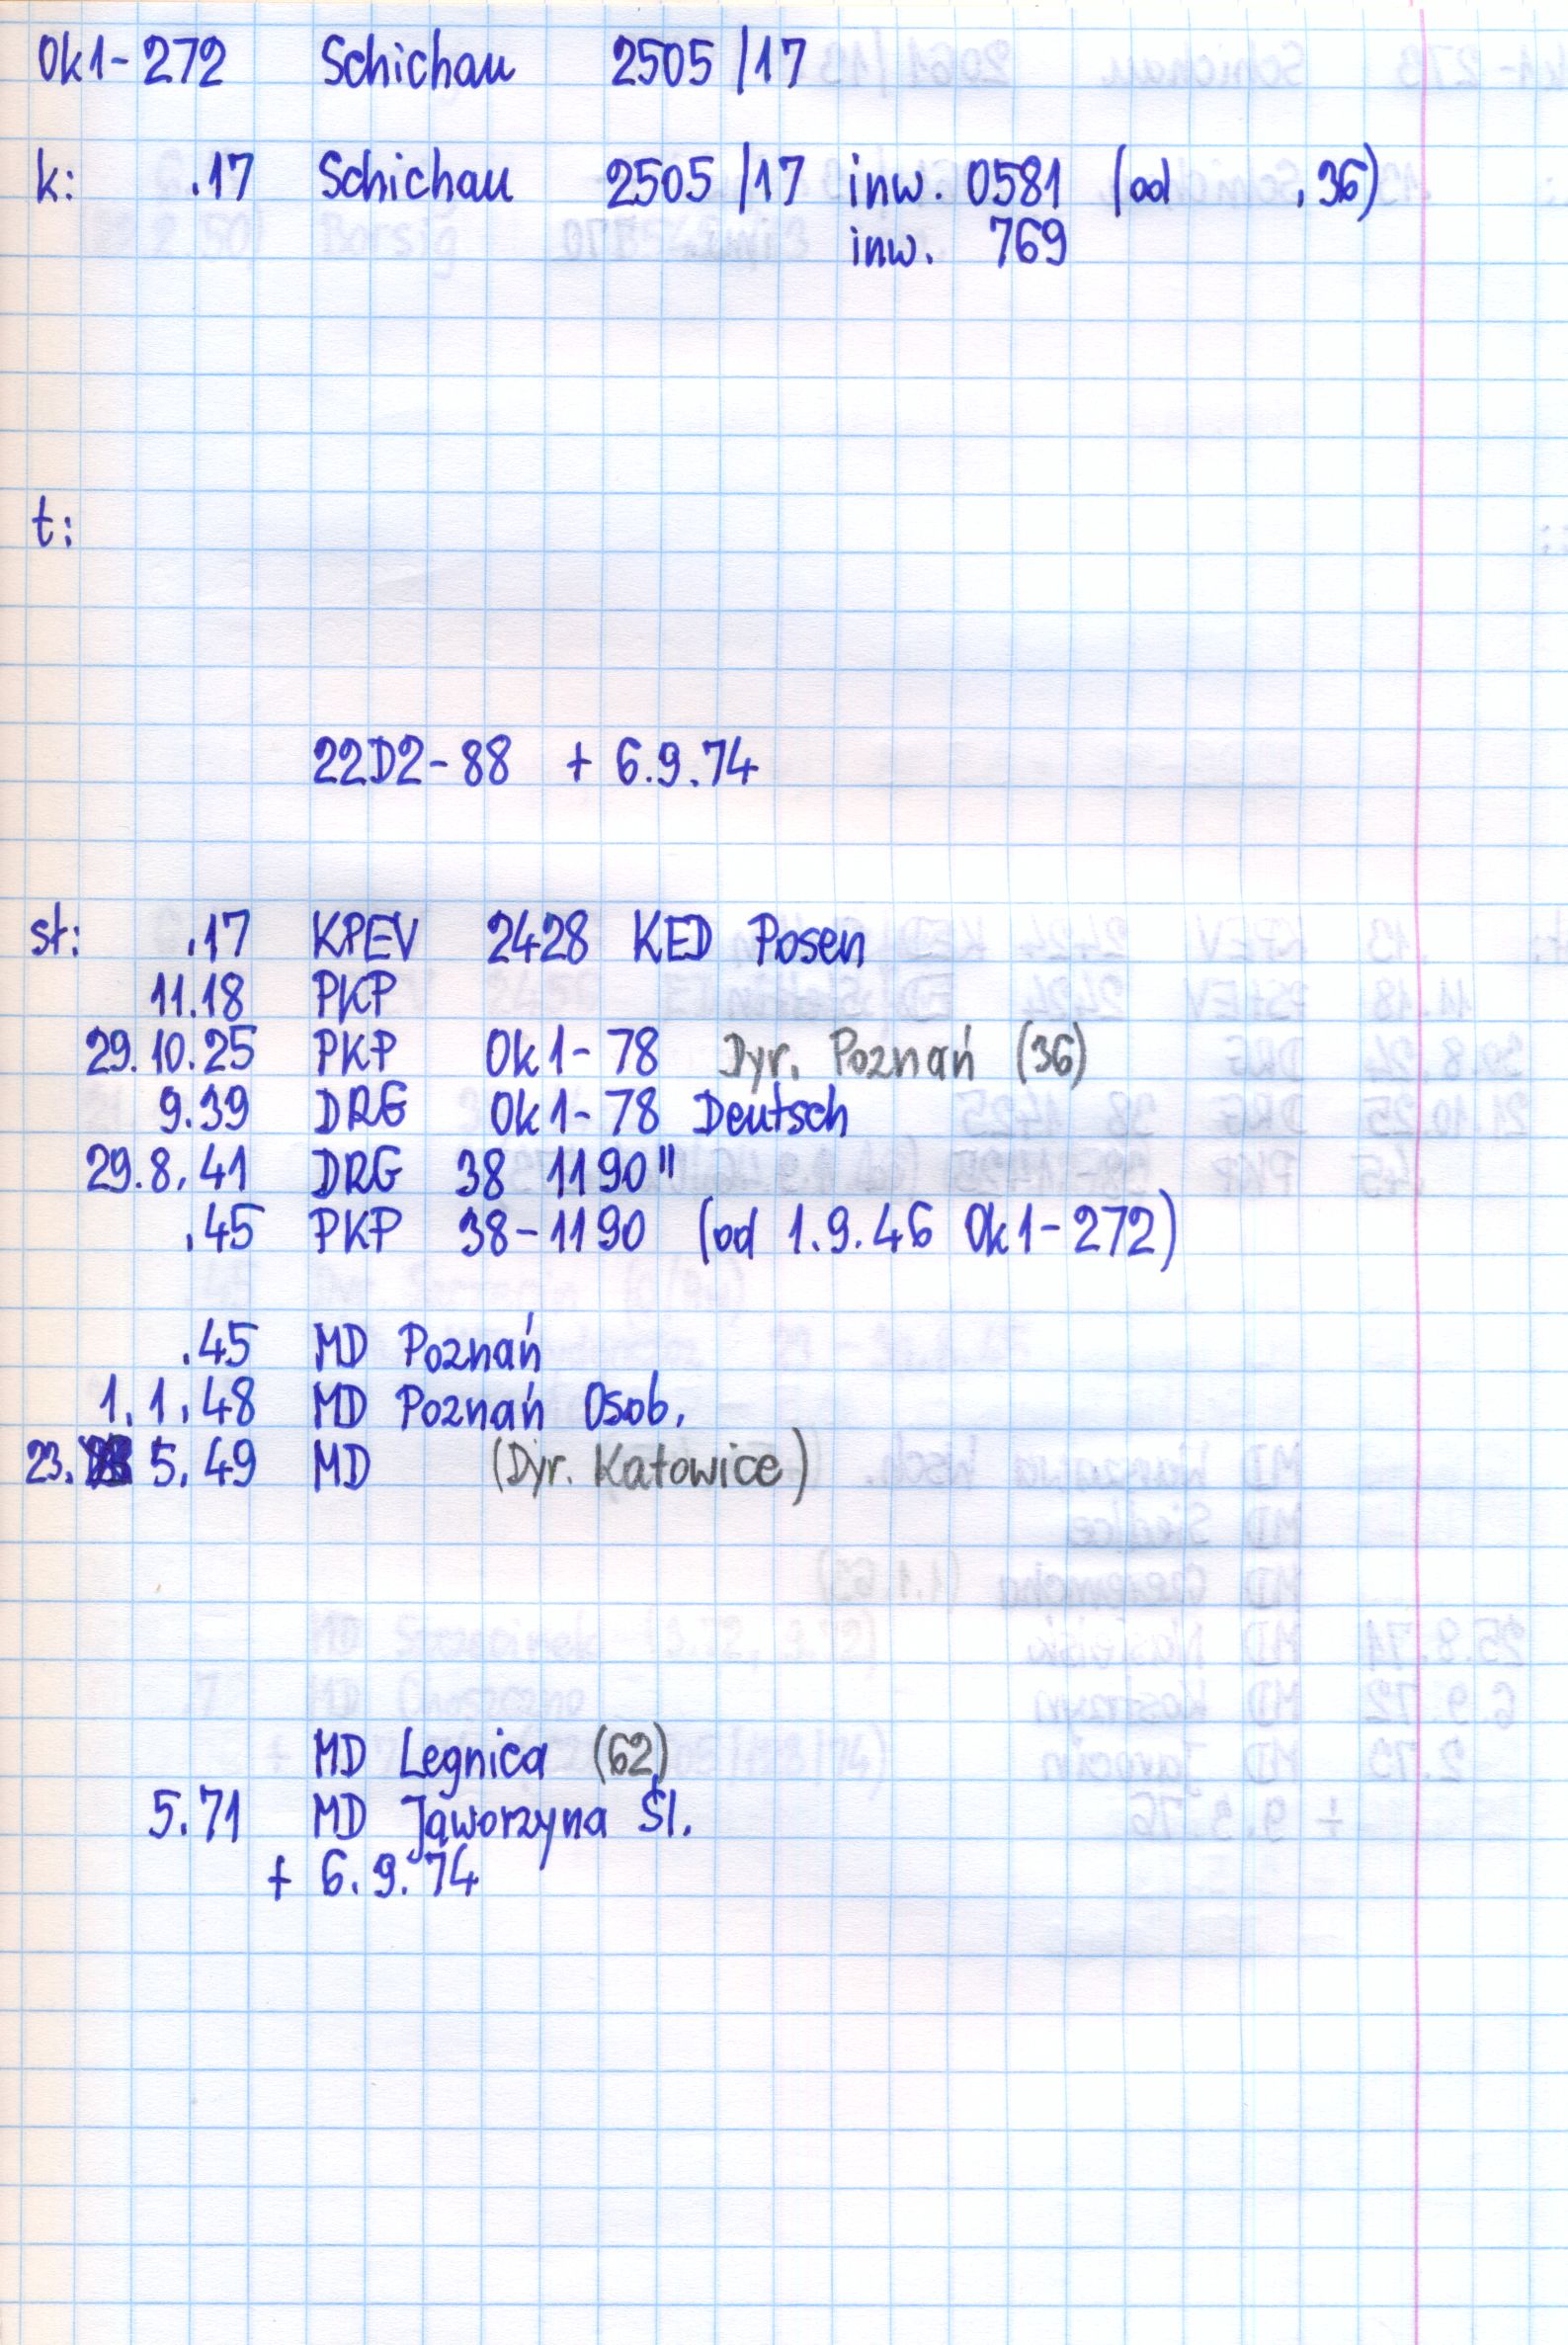 Ok1-272 Schichau 2505/17
k: .17 Schichau 2505/17 inw. 0581 (od .36)
inw. 769
t:
22D2-88 + 6.9.74
st: .17 KPEV 2428 KED Posen
11.18 PKP
29.10.25 PKP Ok1-78 Dyr. Poznań (36)
9.39 DRG Ok1-78 Deutsch
29.8.41 DRG 38 1190"
.45 PKP 38-1190 (od 1.9.46 Ok1-272)
.45 MD Poznań
1.1.48 MD Poznań Osob.
23. 5.49 MD (Dyr. Katowice)
MD Legnica (62)
5.71 MD Jaworzyna Śl.
+ 6.9.74